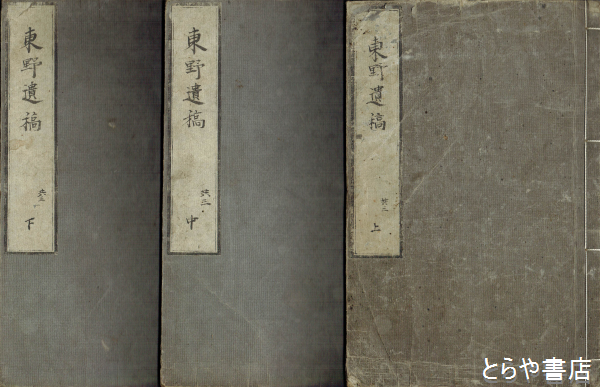 東野遺稿
共三
上
東野遺稿
共三
中
東野遺稿
共三
下
とらや書店